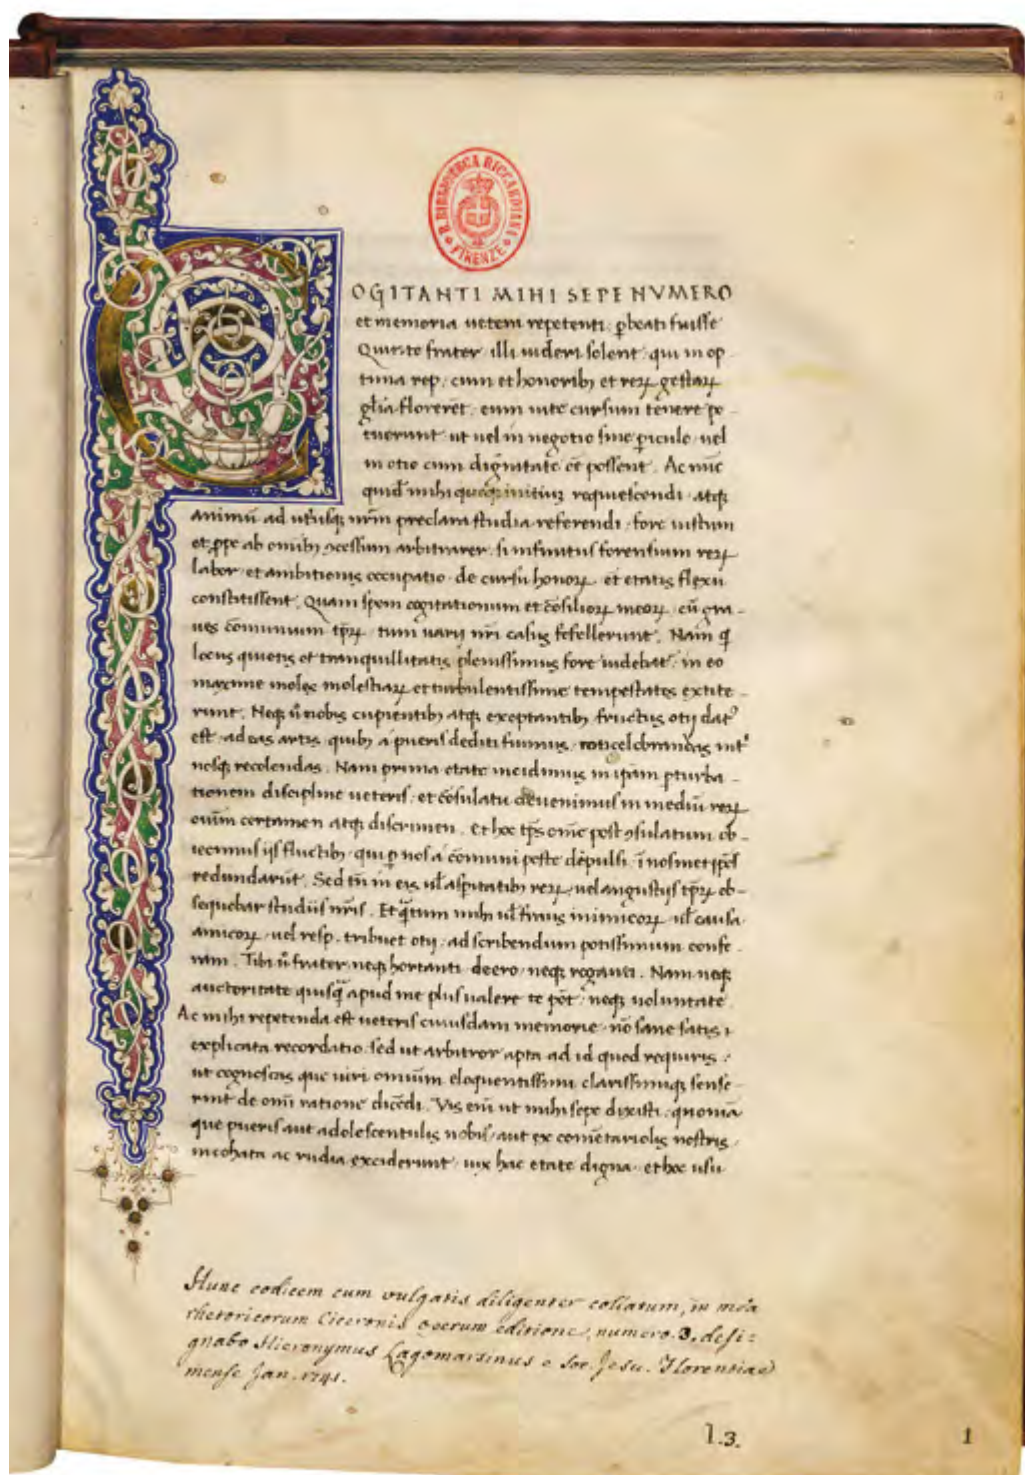 R. BIBLIOTECA RICCARDIANA
FIRENZE
COGITANTI MIHI SEPE NVMERO
et memoria uetera repetenti pbeati fuisse
Quinte frater illi uideri solent qui in op
tuma rep. cum et honoribꝫ et reꝝ gestaꝝ
gl̄ia floreret̄ eum uite cursum tenere po-
tuerunt ut uel in negotio sine ꝑiculo uel
in otio cum dignitate eē possent. Ac
quid mihi quoqꝫ initiuꝫ requiescendi atqꝫ
animū ad utriusqꝫ nr̄m preclara studia referendi fore iustum
et ꝓpe ab omibꝫ ꝯcessum arbitrarer si infinitus forensium reꝝ
labor et ambitionis occupatio de cursu honoꝝ et etatis flexu
constitissent. Quam spem cogitationum et cōsilioꝝ meoꝝ cū gra-
ues cōmunium tp̄ꝝ tum uarij nr̄i casus fefellerunt. Nam q̄
locus quietis et tranquillitatis plenissimus fore uidebat in eo
maxime moles molestiaꝝ et turbulentissime tempestates extite-
runt. Neqꝫ ū nobis cupientibꝫ atqꝫ exoptantibꝫ fructus otij dat᾽
est ad eas artis quibꝫ a pueris dediti fuimus celebrandas int᾽
nosqꝫ recolendas. Nam prima etate incidimus in ip̄am pturba-
tionem discipline ueteris et cōsulatu deuenimus in mediū reꝝ
oniūm certamen atqꝫ discrimen. Et hoc tp̄s om̄e post ꝯsulatum ob-
iecimus ijs fluctibꝫ qui ꝑ nos a cōmuni peste depulsi ī nosmet ip̄os
redundarūt. Sed tn̄ in eis ul̄ aspitatibꝫ reꝝ uel angustijs tp̄ꝝ ob-
sequebar studiis nr̄is. Et q̄tum mihi ul̄ fraus inimicoꝝ ul̄ causa
amicoꝝ uel resp. tribuet otij ad scribendum potissimum confe-
ram. Tibi ū frater neqꝫ hortanti deero neqꝫ roganti. Nam neqꝫ
auctoritate quisq̄ apud me plus ualere te pōt neqꝫ uoluntate
Ac mihi repetenda est ueteris cuiusdam memorie nō sane satis
explicata recordatio sed ut arbitror apta ad id quod requiris
ut cognoscas que uiri omniūm eloquentissimi clarissimiqꝫ sense-
rint de omī ratione dicēdi. Vis enī ut mihi sepe dixisti quoniā
que pueris aut adolescentulis nobis aut ex comētariolis nostris
inchohata ac rudia exciderunt uix hac etate digna et hoc usu
Hunc codicem cum vulgatis diligenter collatum, in meā
rhetoricorum Ciceronis operum editione, numero 3. desi=
gnabo Hieronymus Lagomarsinus e Soc. Jesu. Florentiae
mense Jan. 1741.
1.3.
1